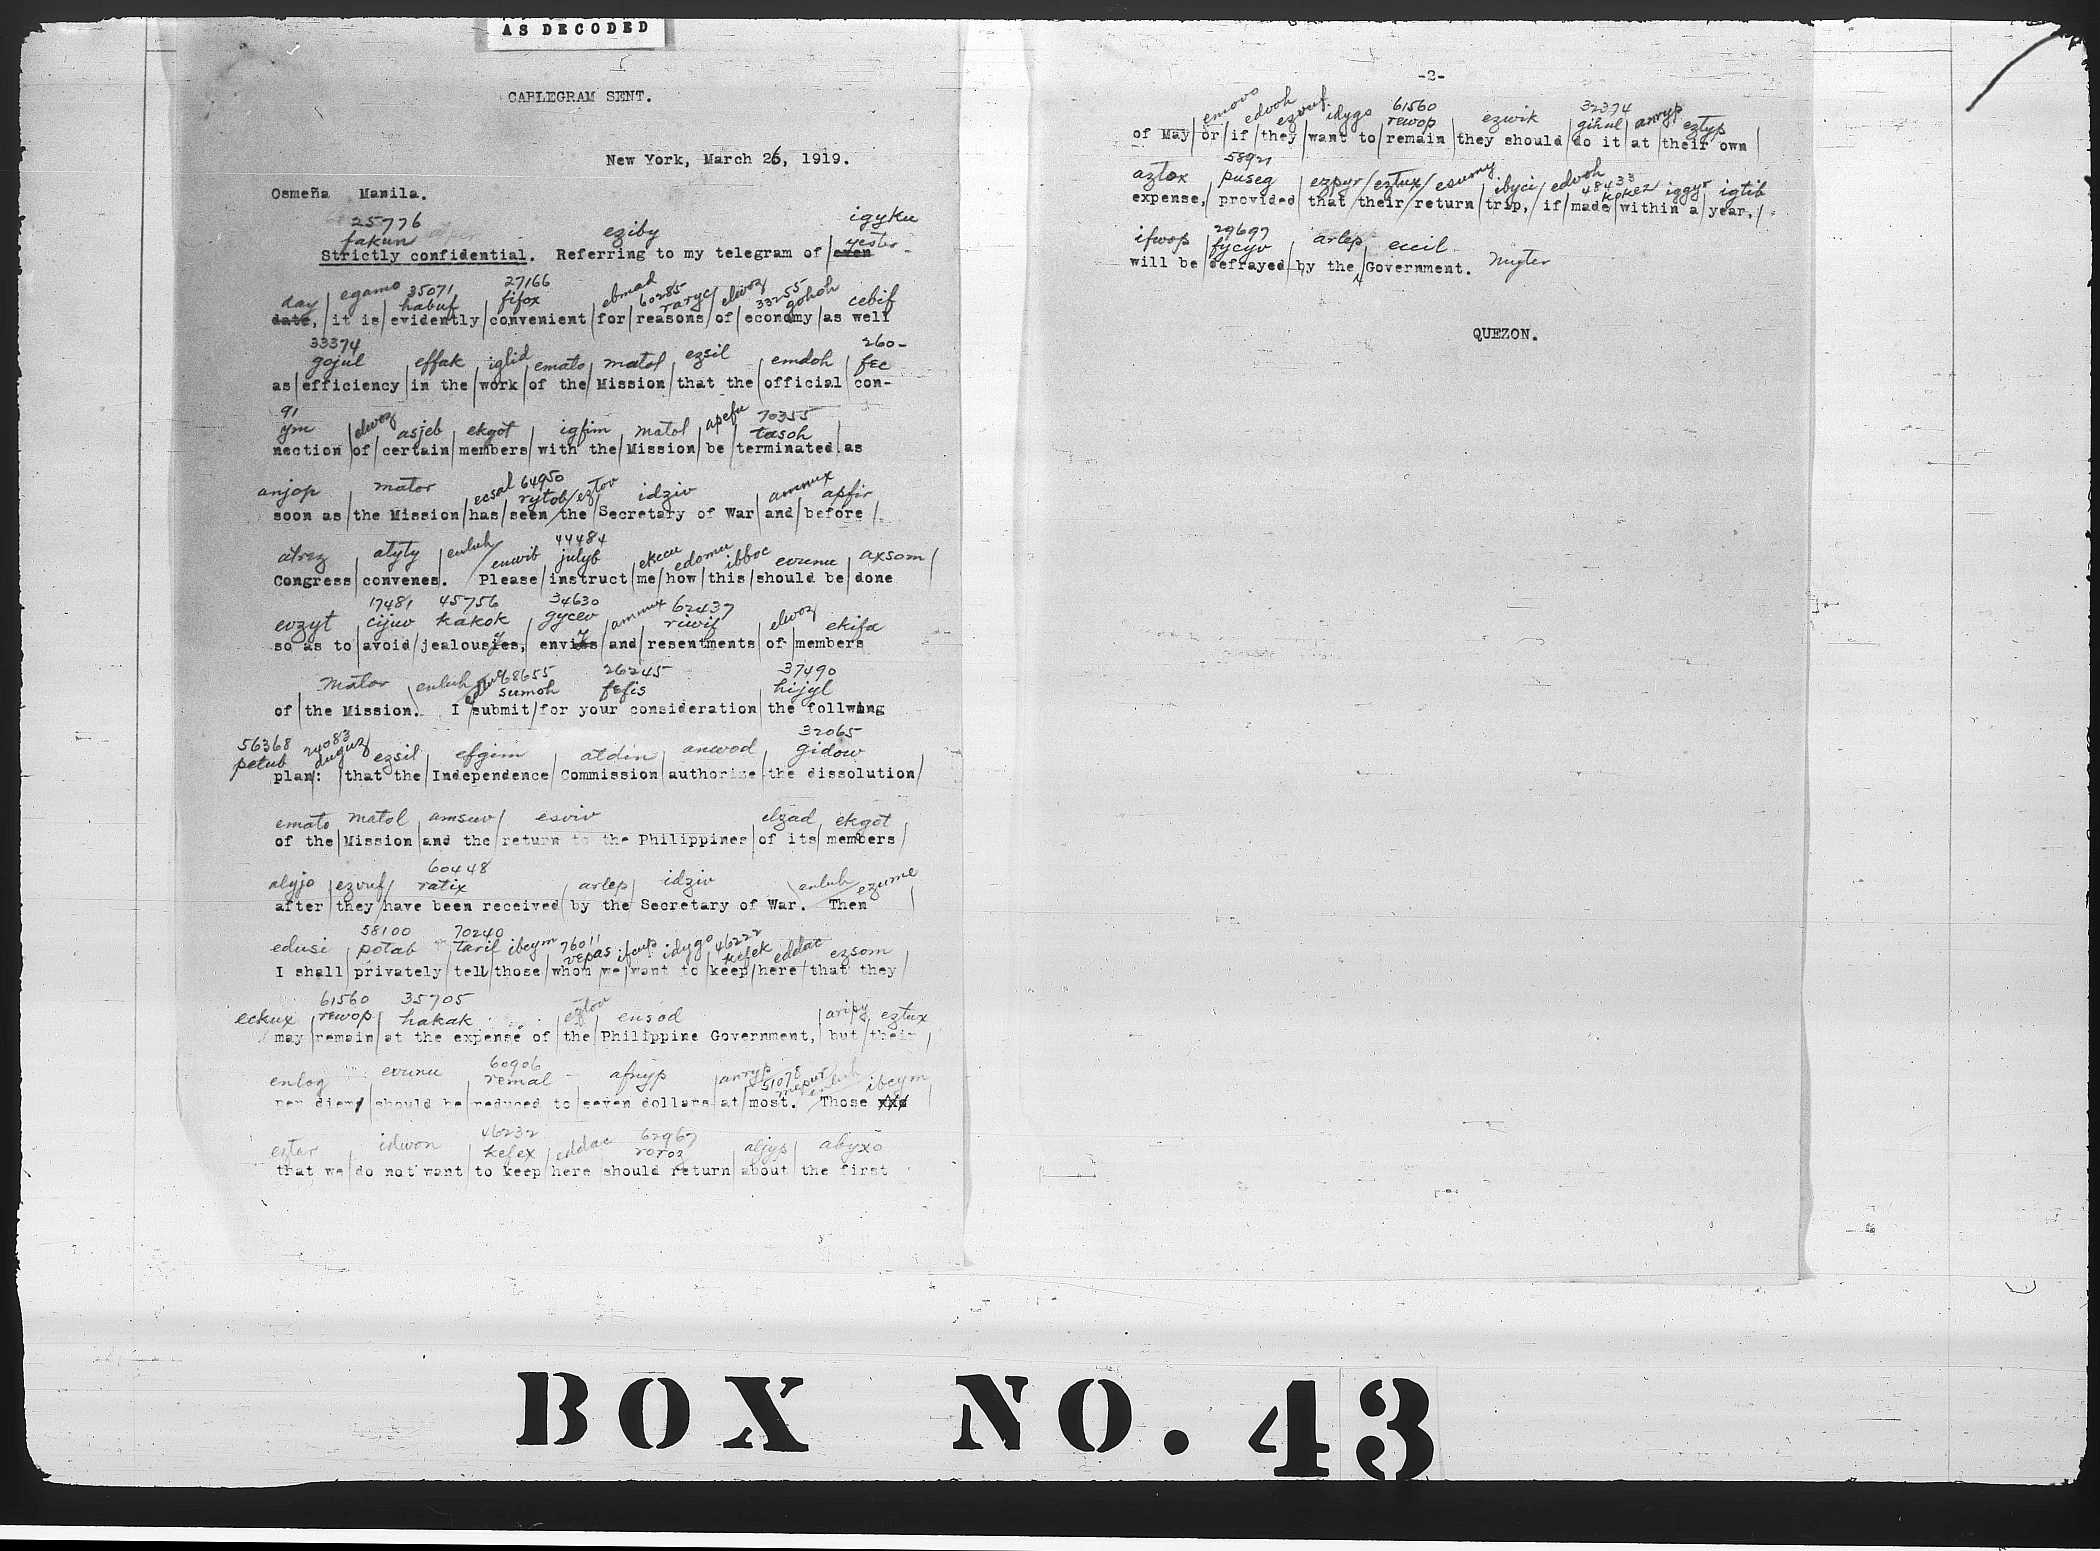 AS DECODED
CABLEGRAM SENT.
New York, March 26, 1919.
Osmeña Manila.
25776 igyku
fakun eziby yester-
Strictly confidential. Referring to my telegram of even
27166
day egamo 35071 fifox ebmad 60285 elwoz 33255 cebif
habuf raryc gohoh
date, it is evidently convenient for reasons of economy as well
33374 260-
gojul effak iglid emato matol ezsil emdoh fec
as efficiency in the work of the Mission that the official con-
91 70355
ym elwoz asjeb ekgot igfim matol apefu tasoh
nection of certain members with the Mission be terminated as
anjop mator ecsal 64950 idziv ammux apfir
rytob eztov
soon as the Mission has seen the Secretary of War and before
44484
atrez atyty enluh enwib julyb ekecu edomu ibboc evunu axsom
Congress convenes. Please instruct me how this should be done
17481 45756 34630 62437
evzyt cijuw kakok gycew ammux riwif elwoz ekifa
so as to avoid jealousies, envies and resentments of members
68655 26245 37490
mator enluh sumoh fefis hijyl
of the Mission. I submit for your consideration the follwing
56368 24083 32065
petub duguz ezsil efgim atdin anwod gidow
plan: that the Independence Commission authorize the dissolution
emato matol amsuv esviv elzad ekgot
of the Mission and the return to the Philippines of its members
60448
alyjo ezvuf ratix arlep idziv enluh ezume
after they have been received by the Secretary of War. Then
58100 70240
edusi potab tarif ibcym 76011 ifcup idygo 46222 eddac ezsom
vepas kefek
I shall privately tell those whom we want to keep here that they
61560 35705
eckux rewop hakak eztov ensod aripy eztux
may remain at the expense of the Philippine Government, but their
60906
enlog evunu remal afnyp anryp 51078 enluh ibcym
mepur
per diem should be reduced to seven dollars at most. Those xxx
46232 62967
ezter idwon kefex eddac roroz aljyp abyxo
that we do not want to keep here should return about the first
-2-
61560 32374
emovo edvoh ezvuf idygo rewop ezwik gihul anryp eztyp
of May or if they want to remain they should do it at their own
58921
aztox puseg ezpyr eztux esumy ibyci edvoh 48433 iggyr igtib
kokez
expense, provided that their return trip, if made within a year,
29697
ifwop fycyv arlep eicil myter
will be defrayed by the Government.
QUEZON.
BOX NO. 43